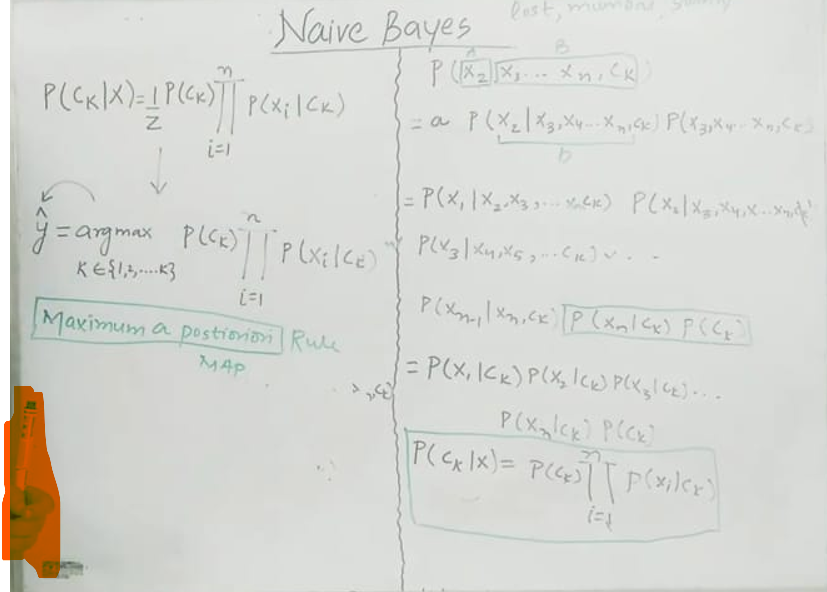 Naive Bayes
P(C_K|X) = 1/Z P(C_K) ∏_{i=1}^{n} P(x_i|C_K)
ŷ = argmax_{K∈{1,2,....K}} P(C_K) ∏_{i=1}^{n} P(x_i|C_k)
Maximum a postiriori Rule
MAP
A B
P(x_2 x_3 ... x_n, C_K)
= a P(x_2|x_3,x_4...x_n,C_K) P(x_3,x_4...x_n,C_k)
b
= P(x_1|x_2,x_3,...x_n C_K) P(x_2|x_3,x_4,x...x_n,C_k)
P(x_3|x_4,x_5,...C_K) ...
P(x_{n-1}|x_n,C_K) P(x_n|C_K) P(C_K)
= P(x_1|C_K) P(x_2|C_K) P(x_3|C_k)...
P(x_n|C_K) P(C_K)
P(C_K|X) = P(C_K) ∏_{i=1}^{n} P(x_i|C_K)